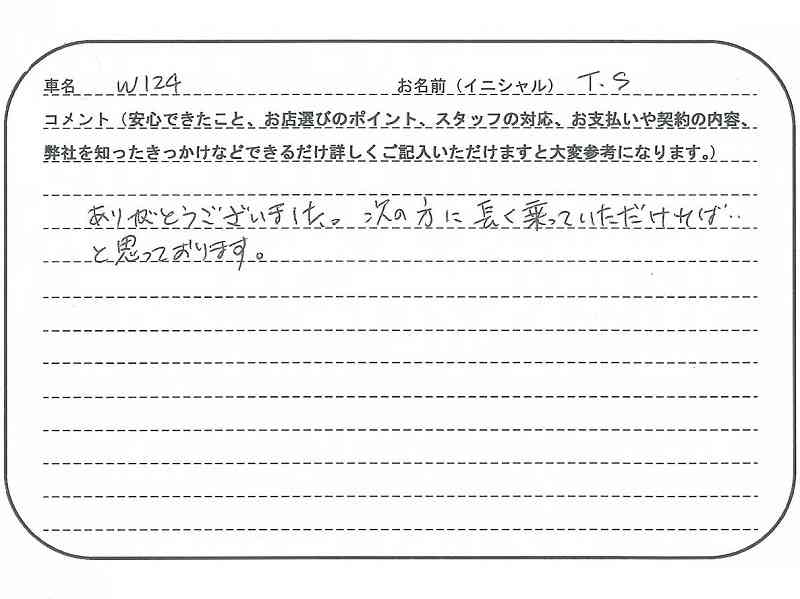 車名 W124 お名前（イニシャル） T.S
コメント（安心できたこと、お店選びのポイント、スタッフの対応、お支払いや契約の内容、
弊社を知ったきっかけなどできるだけ詳しくご記入いただけますと大変参考になります。）
ありがとうございました。次の方に長く乗っていただければ‥
と思っております。